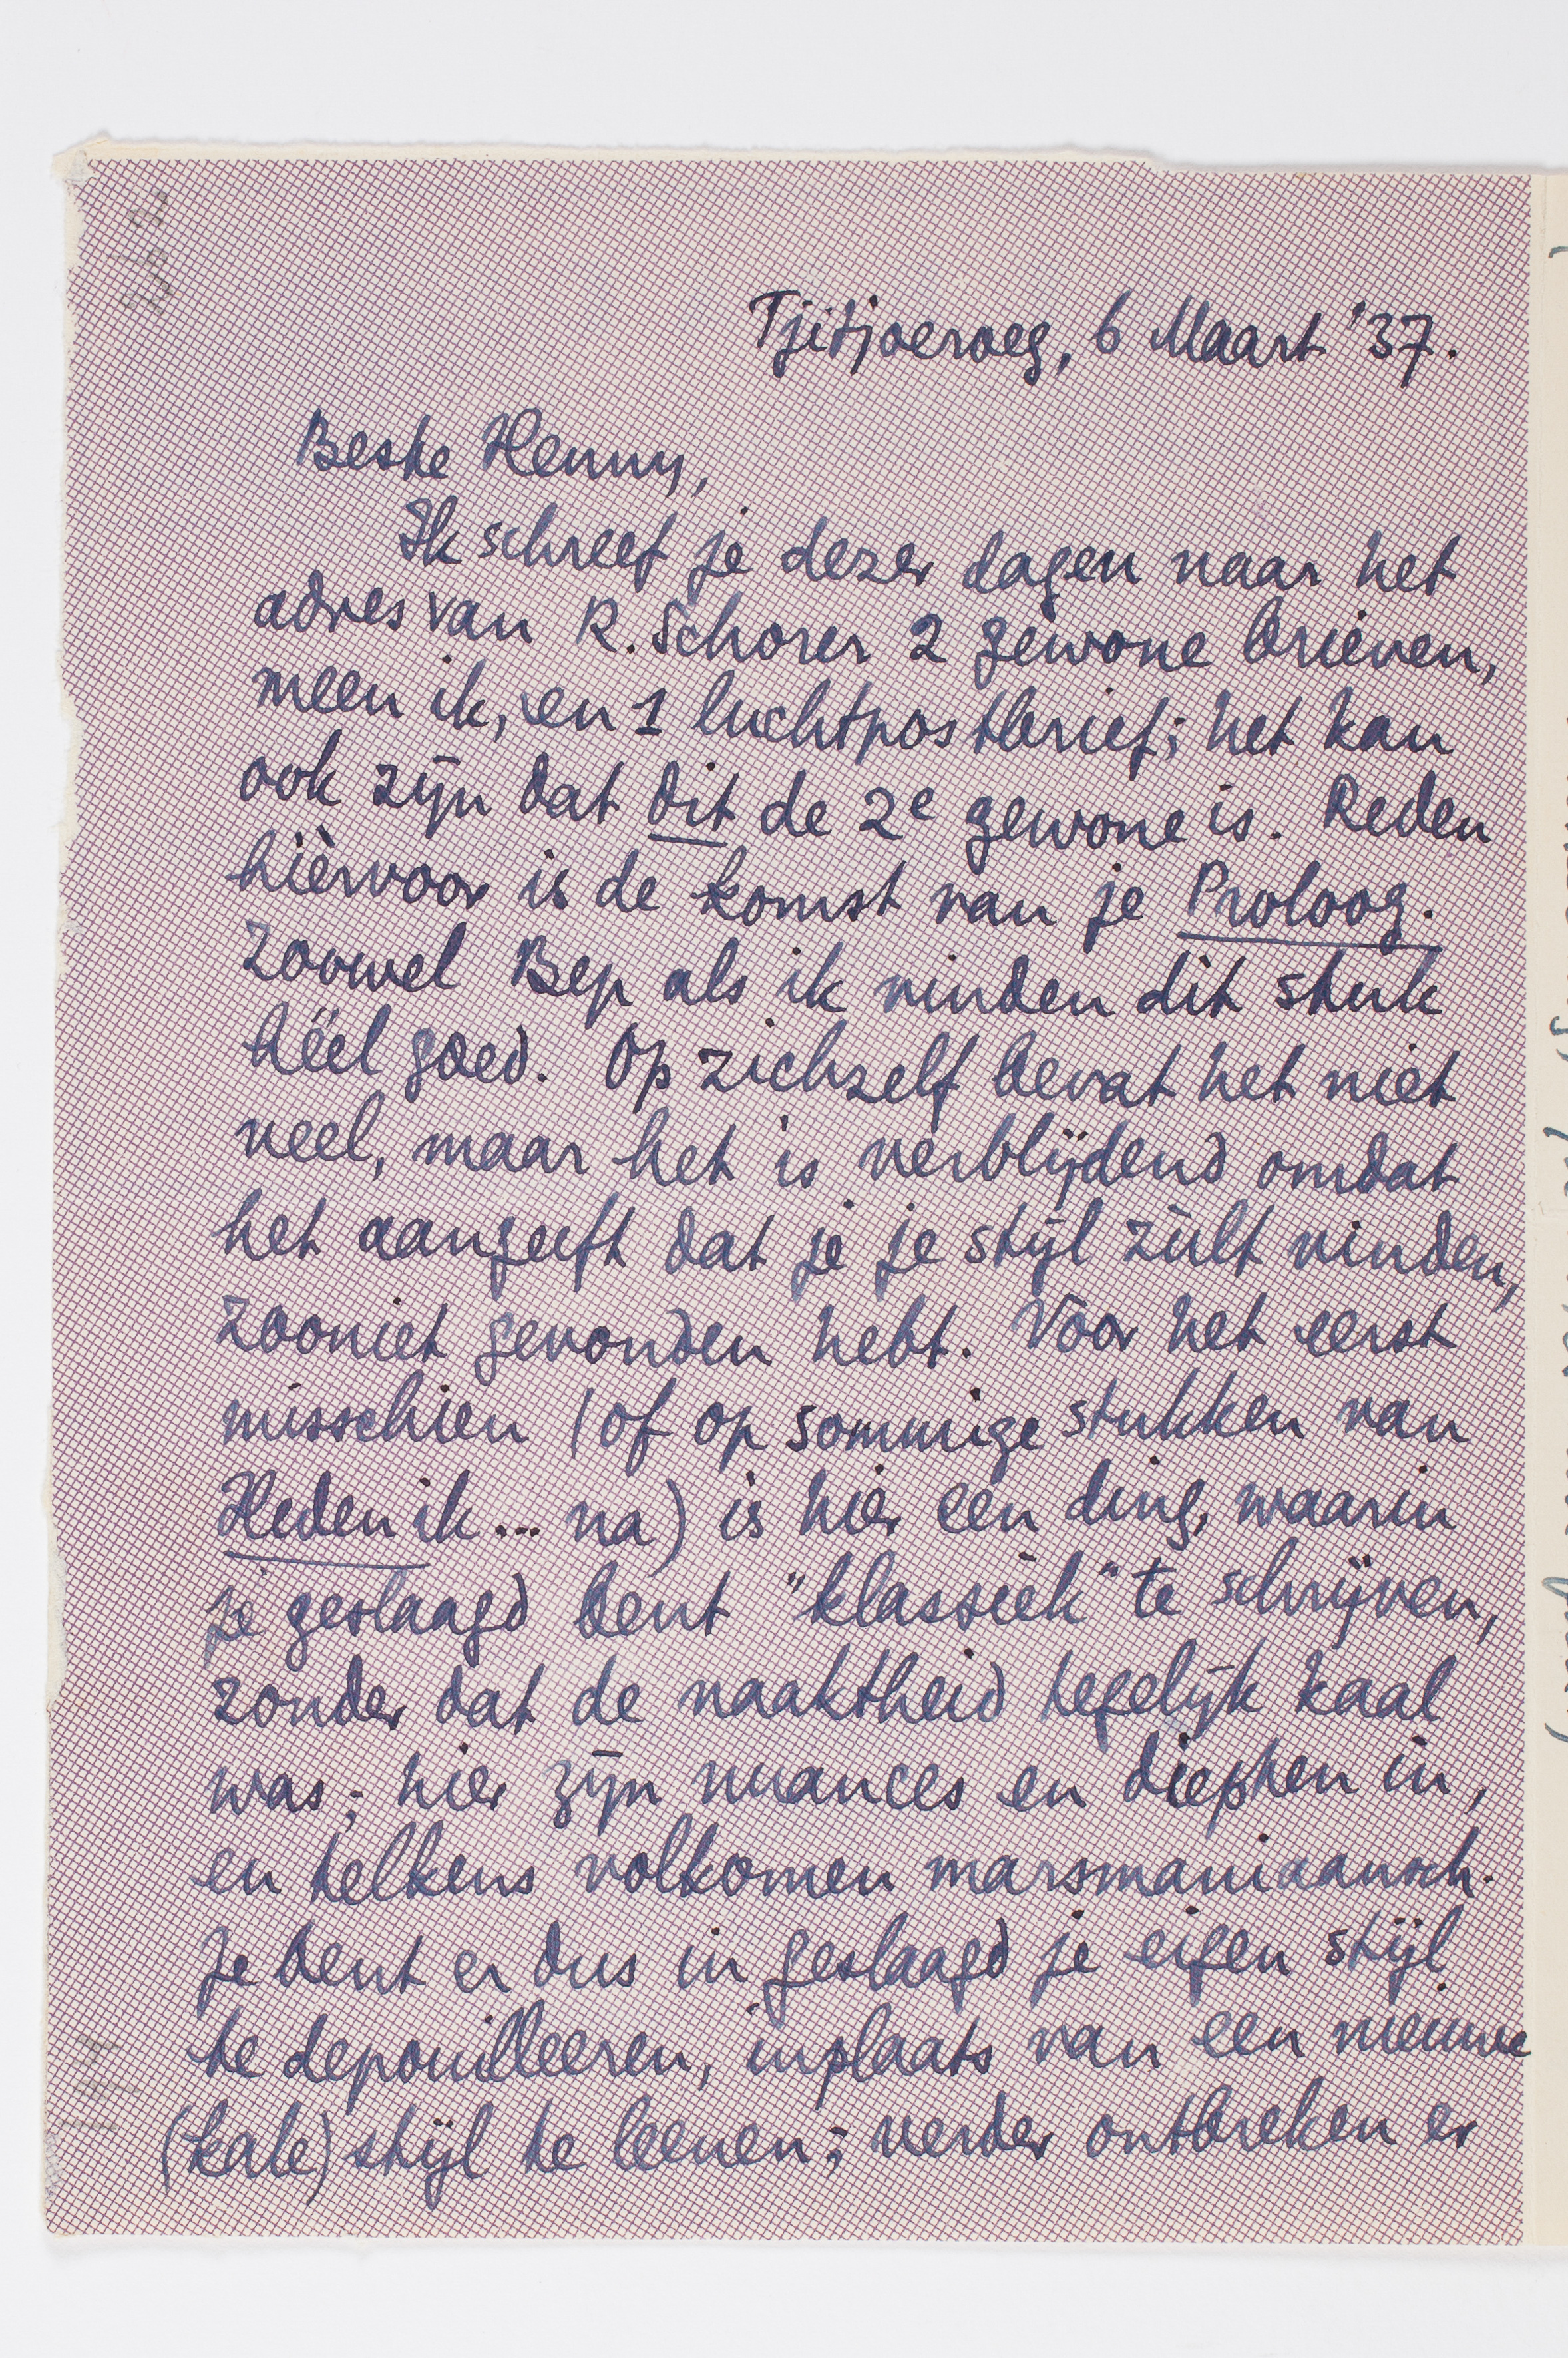 Tjitjoeroeg, 6 Maart '37.
Beste Henny,
Ik schreef je dezer dagen naar het
adres van R. Schorer 2 gewone brieven,
meen ik, en 1 luchtpostbrief; het kan
ook zijn dat dit de 2e gewone is. Reden
hièrvoor is de komst van je Proloog.
Zoowel Bep als ik vinden dit stuk
héél goed. Op zichzelf bevat het niet
veel, maar het is verblijdend omdat
het aangeeft dat je je stijl zùlt vinden,
zooniet gevonden hebt. Voor het eerst
misschien (of op sommige stukken van
Heden ik... na) is hier een ding, waarin
je geslaagd bent "klassiek" te schrijven,
zonder dat de naaktheid tegelijk kaal
was; hier zijn nuances en diepten in,
en telkens volkomen marsmaniaansch.
Je bent er dus in geslaagd je eigen stijl
te depouilleeren, inplaats van een nieuwe
(kale) stijl te leenen; verder ontbreken er